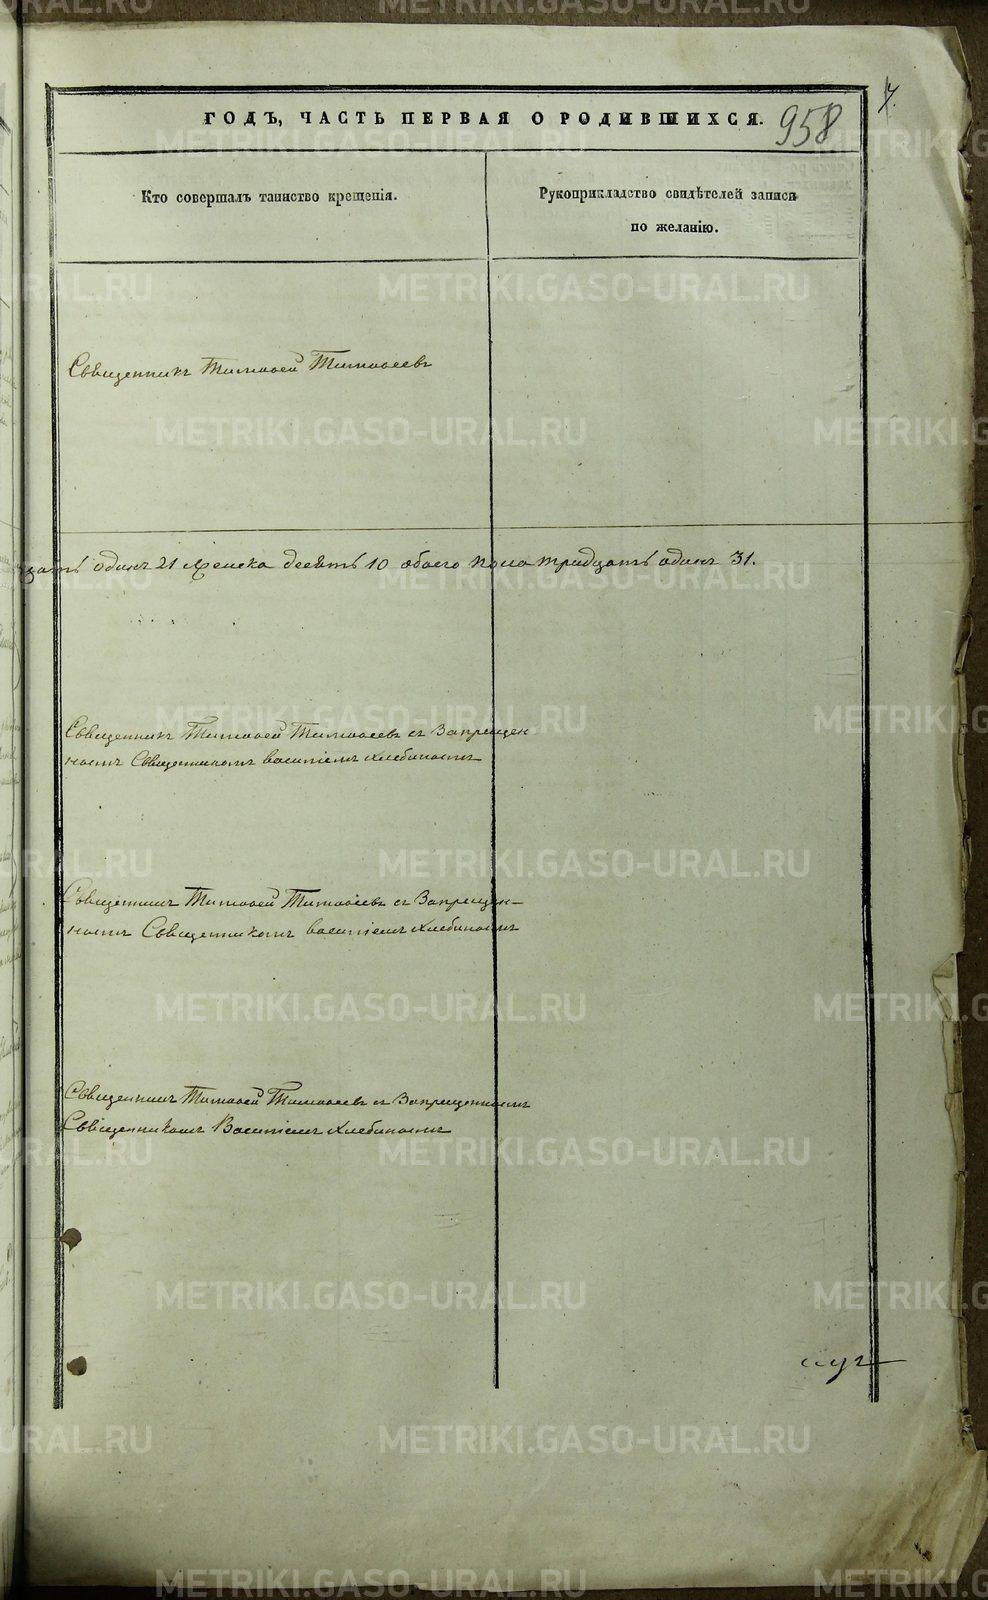 7.
ГОДЪ, ЧАСТЬ ПЕРВАЯ О РОДИВШИХСЯ. 958
Кто совершалъ таинство крещенія.
Рукоприкладство свидѣтелей записи
по желанію.
Священникъ Тимоѳей Тимоѳеевъ
цать одинъ 21 женска десять 10 обоего пола тридцать одинъ 31.
Священникъ Тимоѳей Тимоѳеевъ съ Запрещен
нымъ Священникомъ Василіемъ Хлебинымъ
Священникъ Тимоѳей Тимоѳеевъ съ Запрещен-
нымъ Священникомъ Василіемъ Хлебинымъ
Священникъ Тимоѳей Тимоѳеевъ съ Запрещеннымъ
Священникомъ Василіемъ Хлебинымъ
METRIKI.GASO-URAL.RU